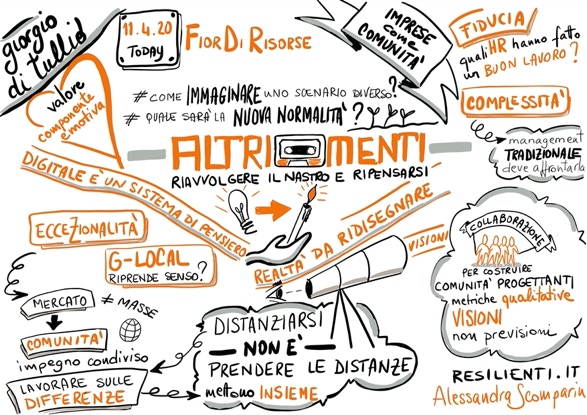 giorgio
di tullio
11.4.20
TODAY
FIOR DI RISORSE
IMPRESE
come
COMUNITÀ
FIDUCIA
quali HR hanno fatto
un BUON LAVORO?
COMPLESSITÀ
management
TRADIZIONALE
deve affrontarla
valore
componente
emotiva
# COME IMMAGINARE UNO SCENARIO DIVERSO?
# QUALE SARÀ LA NUOVA NORMALITÀ?
ALTRI MENTI
RIAVVOLGERE IL NASTRO E RIPENSARSI
DIGITALE È UN SISTEMA DI PENSIERO
REALTÀ DA RIDISEGNARE
VISIONI
ECCEZIONALITÀ
G-LOCAL
RIPRENDE SENSO?
MERCATO
# MASSE
COMUNITÀ
impegno condiviso
LAVORARE SULLE
DIFFERENZE
DISTANZIARSI
NON È
PRENDERE LE DISTANZE
mettono INSIEME
COLLABORAZIONE
PER COSTRUIRE
COMUNITÀ PROGETTANTI
metriche qualitative
VISIONI
non previsioni
RESILIENTI.IT
Alessandra Scomparin